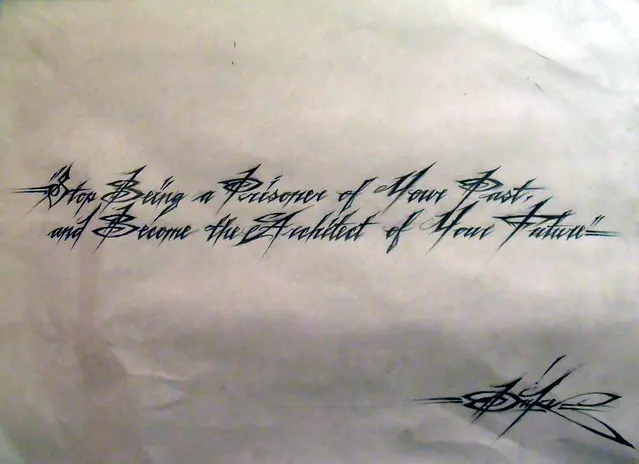 "Stop Being a Prisoner of Your Past,
and Become the Architect of Your Future"